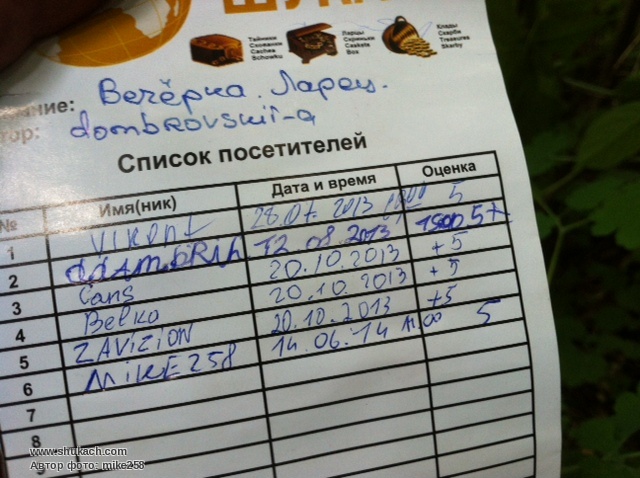 Тайники
Схованки
Caches
Schowku
Ларцы
Скриньки
Caskets
Box
Клады
Скарби
Treasures
Skarby
Вечёрка. Ларец.
тор: dombrovskii-a
Список посетителей
№ Имя(ник) Дата и время Оценка
1 vikont 28.07.2013 5
2 12 08 2013 1500 5+
3 Gans 20.10.2013 +5
4 Belka 20.10.2013 +5
5 ZAVIZION 20.10.2013 +5
6 MIKE258 14.06.14 5
7
8
www.shukach.com
Автор фото: mike258